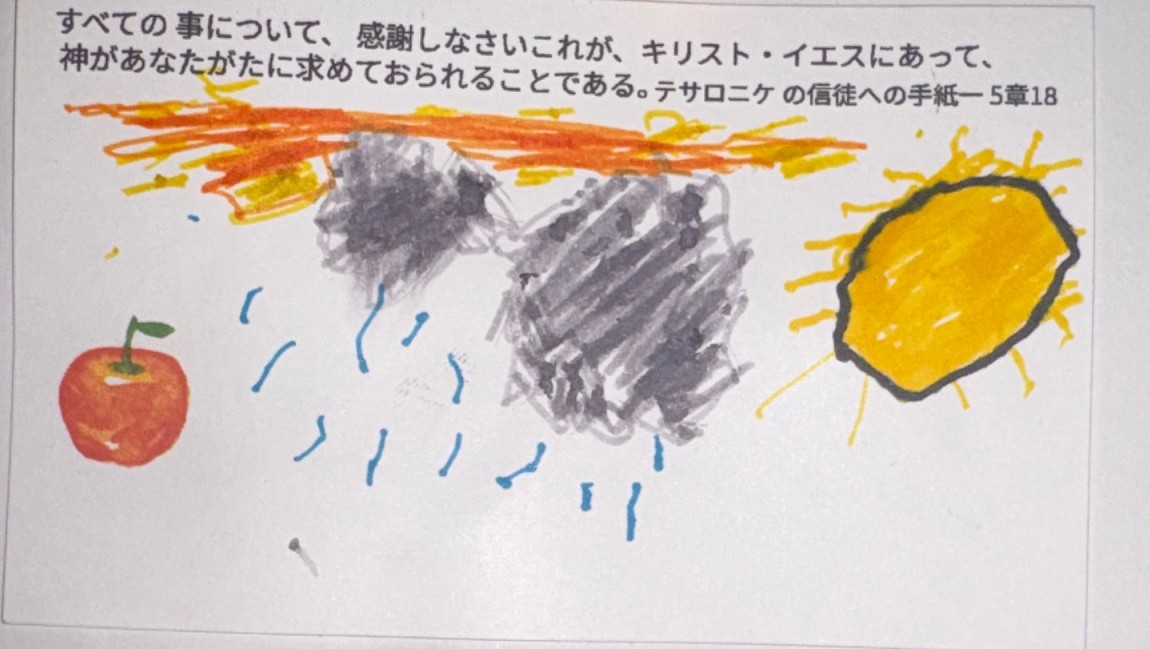 すべての 事について、 感謝しなさいこれが、キリスト・イエスにあって、
神があなたがたに求めておられることである。テサロニケ の信徒への手紙一 5章18